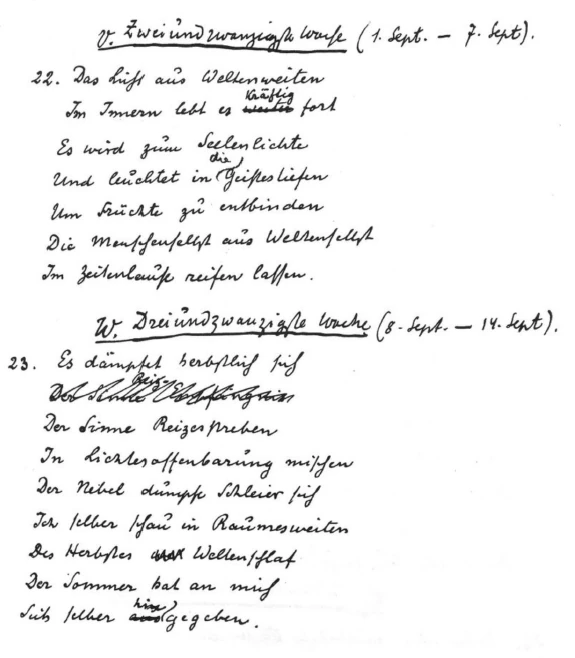 V. Zweiundzwanzigste Woche (1. Sept. – 7. Sept).
22. Das Licht aus Weltenweiten
Im Innern lebt es kräftig fort
Es wird zum Seelenlichte
Und leuchtet in die Geistestiefen
Um Früchte zu entbinden
Die Menschenselbst aus Weltenselbst
Im Zeitenlaufe reifen lassen.
W. Dreiundzwanzigste Woche (8. Sept. – 14. Sept).
23. Es dämpfet herbstlich sich
Der Sinne Reizesstreben
In Lichtesoffenbarung mischen
Der Nebel dumpfe Schleier sich
Ich selber schau in Raumesweiten
Des Herbstes Weltenschlaf
Der Sommer hat an mich
Sich selber hingegeben.